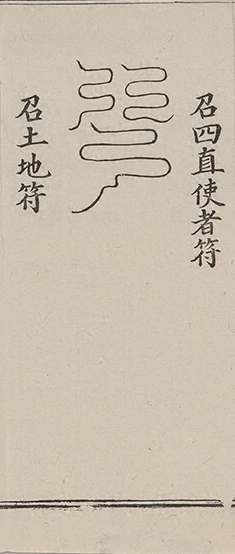 召四直使者符
召土地符